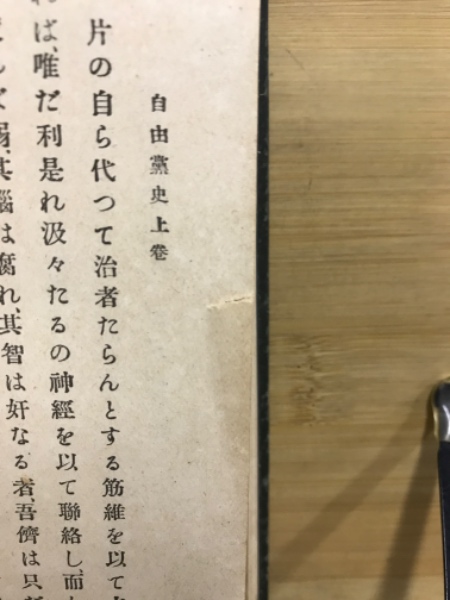 自由黨史上卷
片の自ら代つて治者たらんとする筋維を以て
ば、唯だ利是れ汲々たるの神經を以て聯絡し、而
其腦は腐れ、其智は奸なる者、吾儕は只